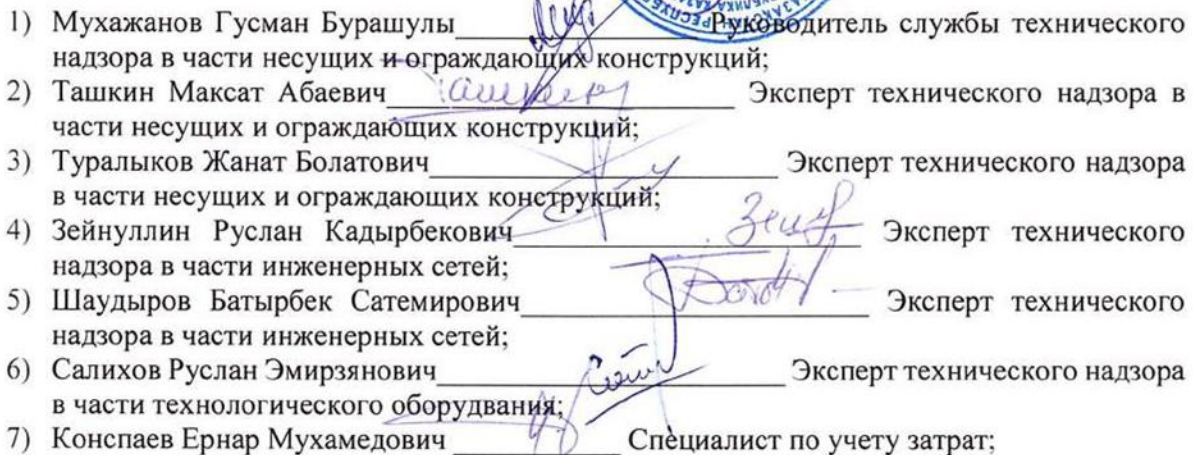 1) Мухажанов Гусман Бурашулы____________________Руководитель службы технического
надзора в части несущих и ограждающих конструкций;
2) Ташкин Максат Абаевич____________________ Эксперт технического надзора в
части несущих и ограждающих конструкций;
3) Туралыков Жанат Болатович____________________ Эксперт технического надзора
в части несущих и ограждающих конструкций;
4) Зейнуллин Руслан Кадырбекович____________________ Эксперт технического
надзора в части инженерных сетей;
5) Шаудыров Батырбек Сатемирович____________________ Эксперт технического
надзора в части инженерных сетей;
6) Салихов Руслан Эмирзянович____________________ Эксперт технического надзора
в части технологического оборудвания;
7) Конспаев Ернар Мухамедович __________ Специалист по учету затрат;